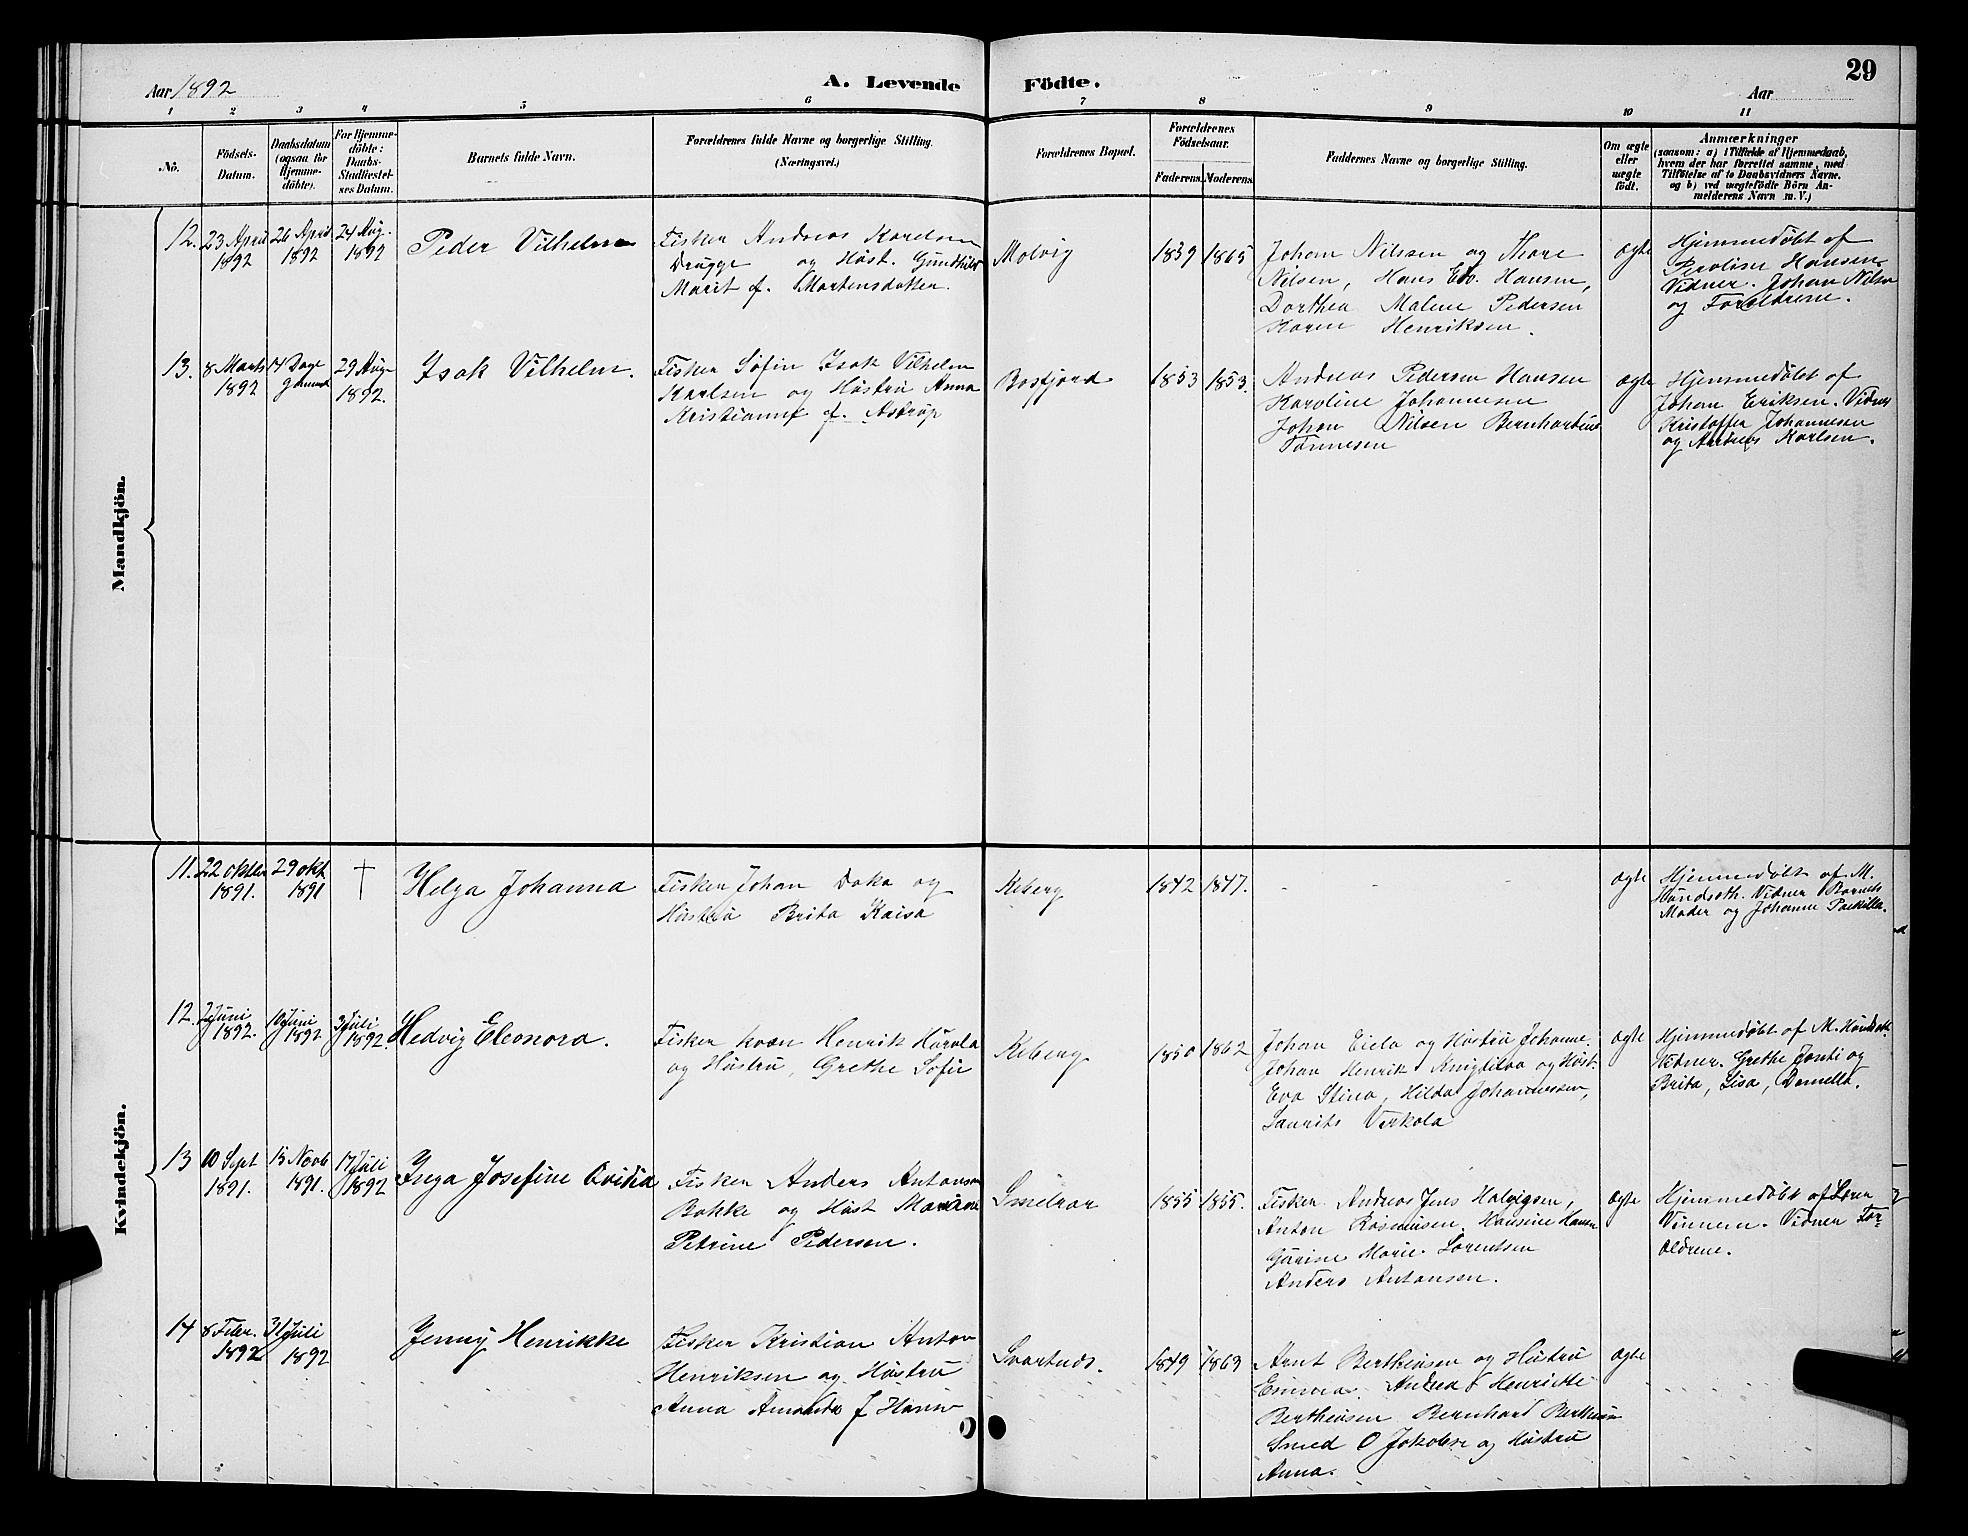 Aar 1892
A. Levende
Födte.
29
Aar
1 2 3 4 5 6 7 8 9 10 11
No.
Födsels-
Datum.
Daabsdatum
(ogsaa for
Hjemme-
döbte).
For Hjemme-
döbte:
Daabs-
Stadfæstel-
ses Datum.
Barnets fulde Navn.
Forældrenes fulde Navne og borgerlige Stilling.
(Næringsvei.)
Forældrenes Bopæl.
Forældrenes
Födselsaar.
Faderens. Moderens.
Faddernes Navne og borgerlige Stilling.
Om ægte
eller
uægte
födt.
Anmærkninger
(saasom: a) i Tilfælde af Hjemmedaab,
hvem der har forrettet samme, med
Tilföielse af to Daabsvidners Navne.
og b) ved uægtefödte Börn An-
melderens Navn m. V.)
Mandkjön.
12.
23 April
1892
26 April
1892
24 Aug.
1892
Peder Vilhelm
Fisker Andreas Karelsen
Drugge og Hust. Gundhild
Marit f. Mortensdatter.
Molvig
1839
1865
Johan Nilsen og Thore
Nilsen, Hans Ed. Hansen,
Dorthea Malene Pedersen
Karen Henriksen.
ægte
Hjemmedöbt af
Peroline Hansen
Vidner. Johan Nilsen
og Forældrene.
13.
8 Marts
1892
14 Dage
gammel
29 Aug
1892.
Isak Vilhelm.
Fisker Søfin Isak Vilhelm
Karlsen og Hustru Anna
Kristianne f. Astrup
Bosfjord
1853
1853.
Andreas Pedersen Hansen
Karoline Johannesen
Johan Nilsen Bernhardus
Tønnesen
ægte
Hjemmedöbt af
Johan Eriksen. Vidner
Kristoffer Johannesen
og Andreas Karlsen.
Kvindekjön.
11.
22 oktbr
1891.
29 okt
1891
†
Helga Johanna
Fisker Johan Daka og
Hustru Brita Kaisa
Kiberg
1842
1847.
- - -
ægte
Hjemmedöbt af M.
Hundseth. Vidner Barnets
Moder og Johanne
12.
2 Juni
1892.
10 Juni
1892
3 Juli
1892.
Hedvig Eleonora.
Fisker kvæn Henrik Harola
og Hustru, Grethe Sofie
Kiberg
1850
1862
Johan Eiela og Hustru Johanne.
Johan Henrik og Hust.
Eva Stina, Hilda Johannessen,
Laurits Verkola
ægte
Hjemmedöbt af M. Hundseth
Vidner. Grethe Jonti og
Brita, Lisa,
13
10 Sept
1891.
15 Novb
1891.
17 Juli
1892
Inga Josefine Ovidia
Fisker Anders Antonsen
Bakke og Hust
Petrine Pedersen.
Smelror
1855
1855.
Fisker Andreas Jens Halvigsen,
Anton Rasmusen. Hansine Hansen
Gurine Marie Lorentsen
Anders Antonsen.
ægte
Hjemmedöbt af Søren
Vinnem. Vidner For-
ældrene.
14
8 Febr.
1892
31 Juli
1892
Jenny Henrikke
Fisker Kristian Anton
Henriksen og Hustru
Anna Amanda f Hansen
Svartnæs.
1849
1869
Arnt Bertheusen og Hustru
Emma. Andrea Henriette
Bertheusen Bernhard Bertheusen
Smed O Jakobsen og Hustru
Anna.
ægte